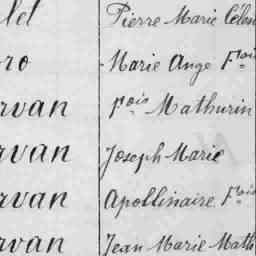 let Pierre Marie Célen
ro Marie Ange Fcois
rvan fcois Mathurin
rvan Joseph Marie
rvan Apollinaire Fcois
rvan Jean Marie Math